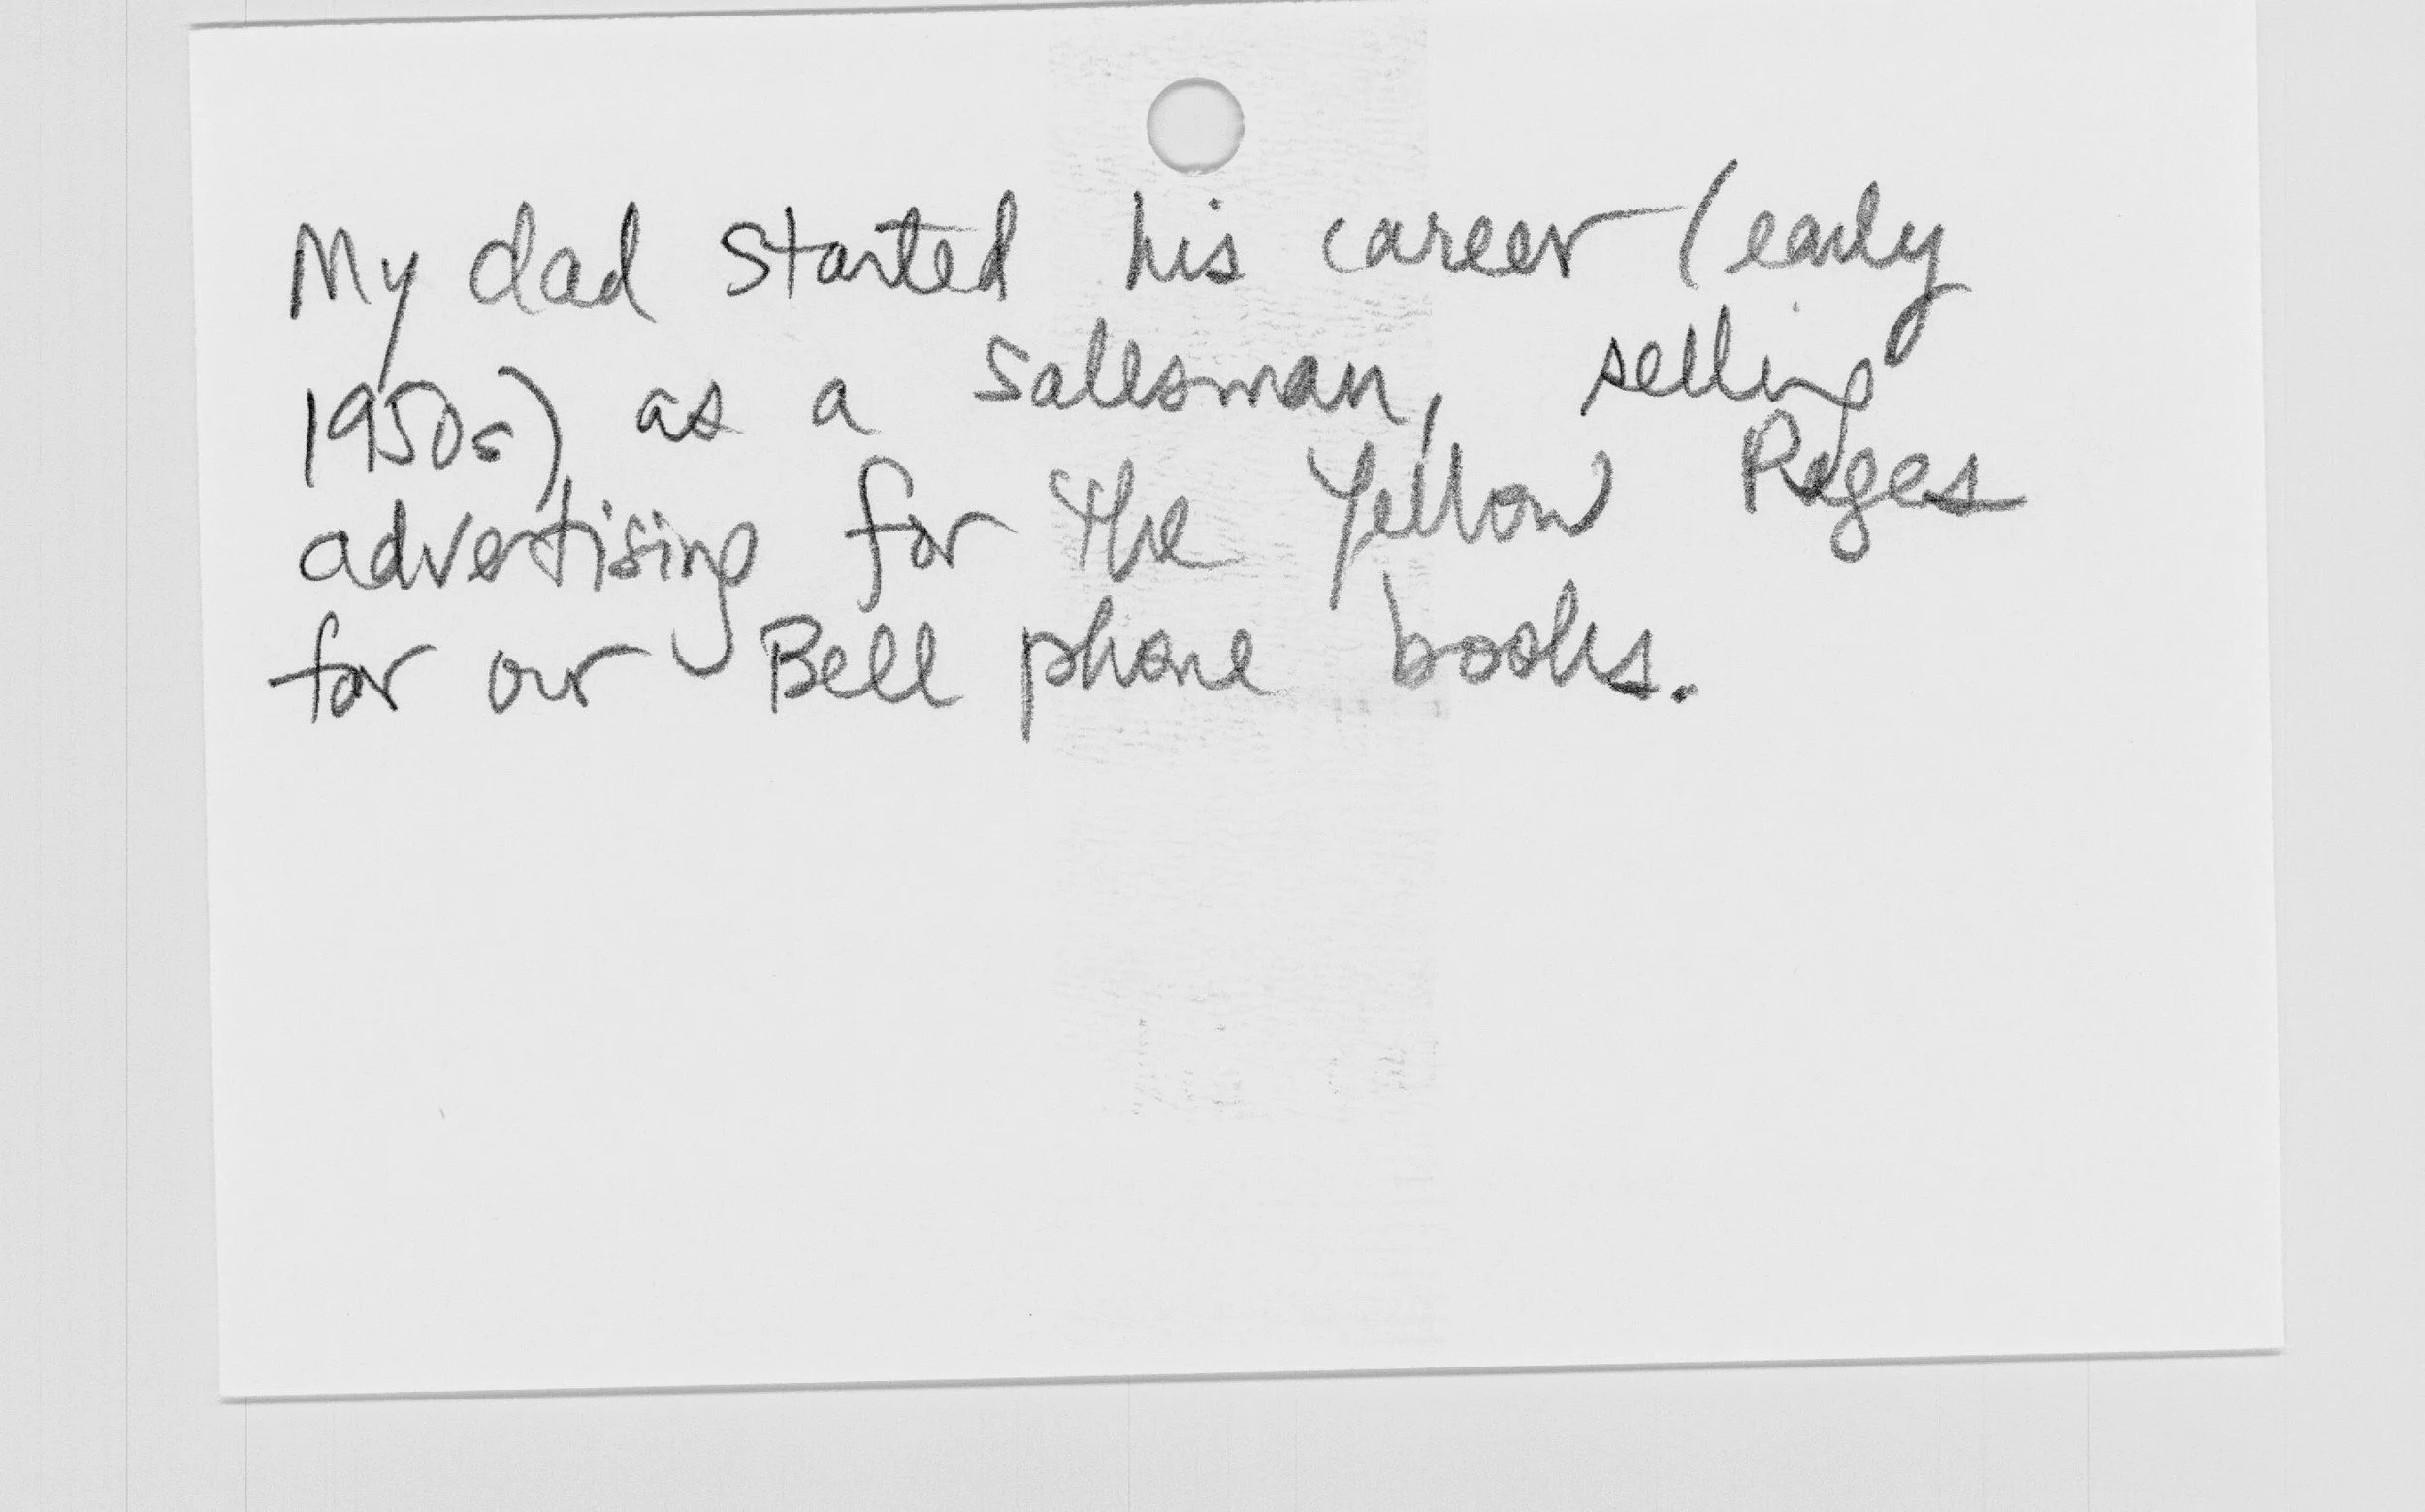 My dad started his career (early
1950s) as a salesman, selling
advertising for the Yellow Pages
for our Bell phone books.